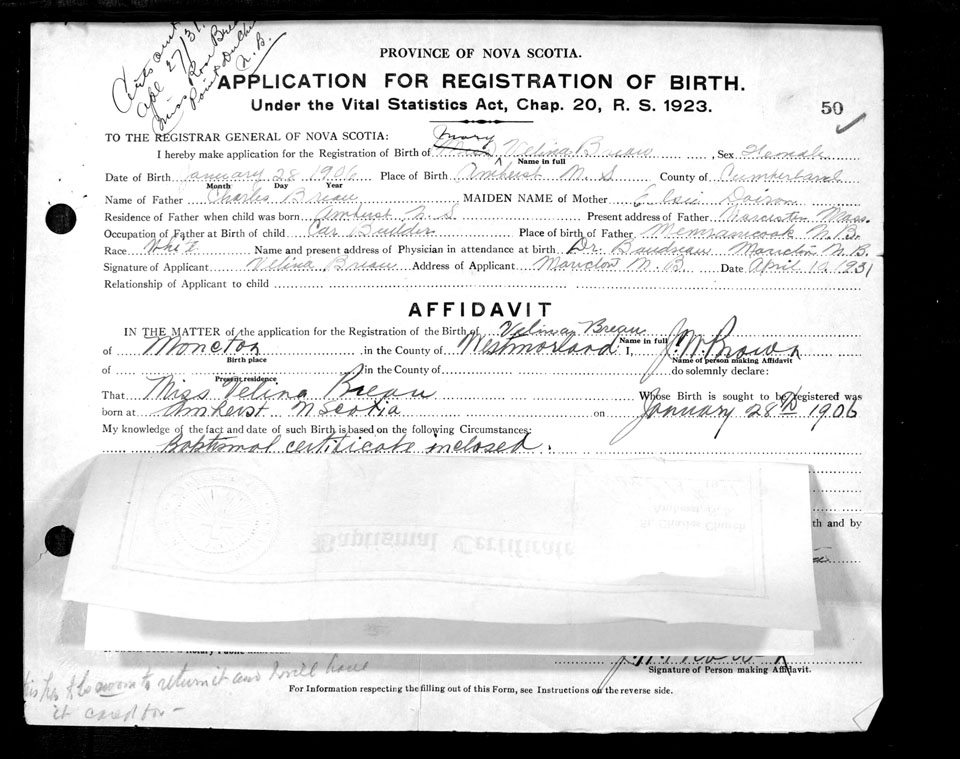 Certs out
Apl 27/31.
Miss Rose Breau
Point
N. B.
PROVINCE OF NOVA SCOTIA.
APPLICATION FOR REGISTRATION OF BIRTH.
Under the Vital Statistics Act, Chap. 20, R. S. 1923.
50
TO THE REGISTRAR GENERAL OF NOVA SCOTIA:
Mary
I hereby make application for the Registration of Birth of Velina Breau, Sex Female
Name in full
Date of Birth January 28 1906 Place of Birth Amherst N. S County of Cumberland
Month Day Year
Name of Father Charles Breau MAIDEN NAME of Mother Elsie
Residence of Father when child was born Amherst N. S Present address of Father Mass.
Occupation of Father at Birth of child Car Builder Place of birth of Father Memramcook N. B.
Race White Name and present address of Physician in attendance at birth Dr. Boudreau Moncton N. B.
Signature of Applicant Velina Breau Address of Applicant Moncton N. B. Date April 12 1931
Relationship of Applicant to child
AFFIDAVIT
IN THE MATTER of the application for the Registration of the Birth of Velina Breau
Name in full
of Moncton in the County of Westmorland I, J. W. Brown
Birth place Name of person making Affidavit
of in the County of do solemnly declare:
Present residence
That Miss Velina Breau Whose Birth is sought to be registered was
born at Amherst N Scotia on January 28th 1906
My knowledge of the fact and date of such Birth is based on the following Circumstances:
Baptismal certificate inclosed.
St. Charles Church
Baptismal Certificate
th and by
Signature of Person making Affidavit.
to return it and will have
For Information respecting the filling out of this Form, see Instructions on the reverse side.
it